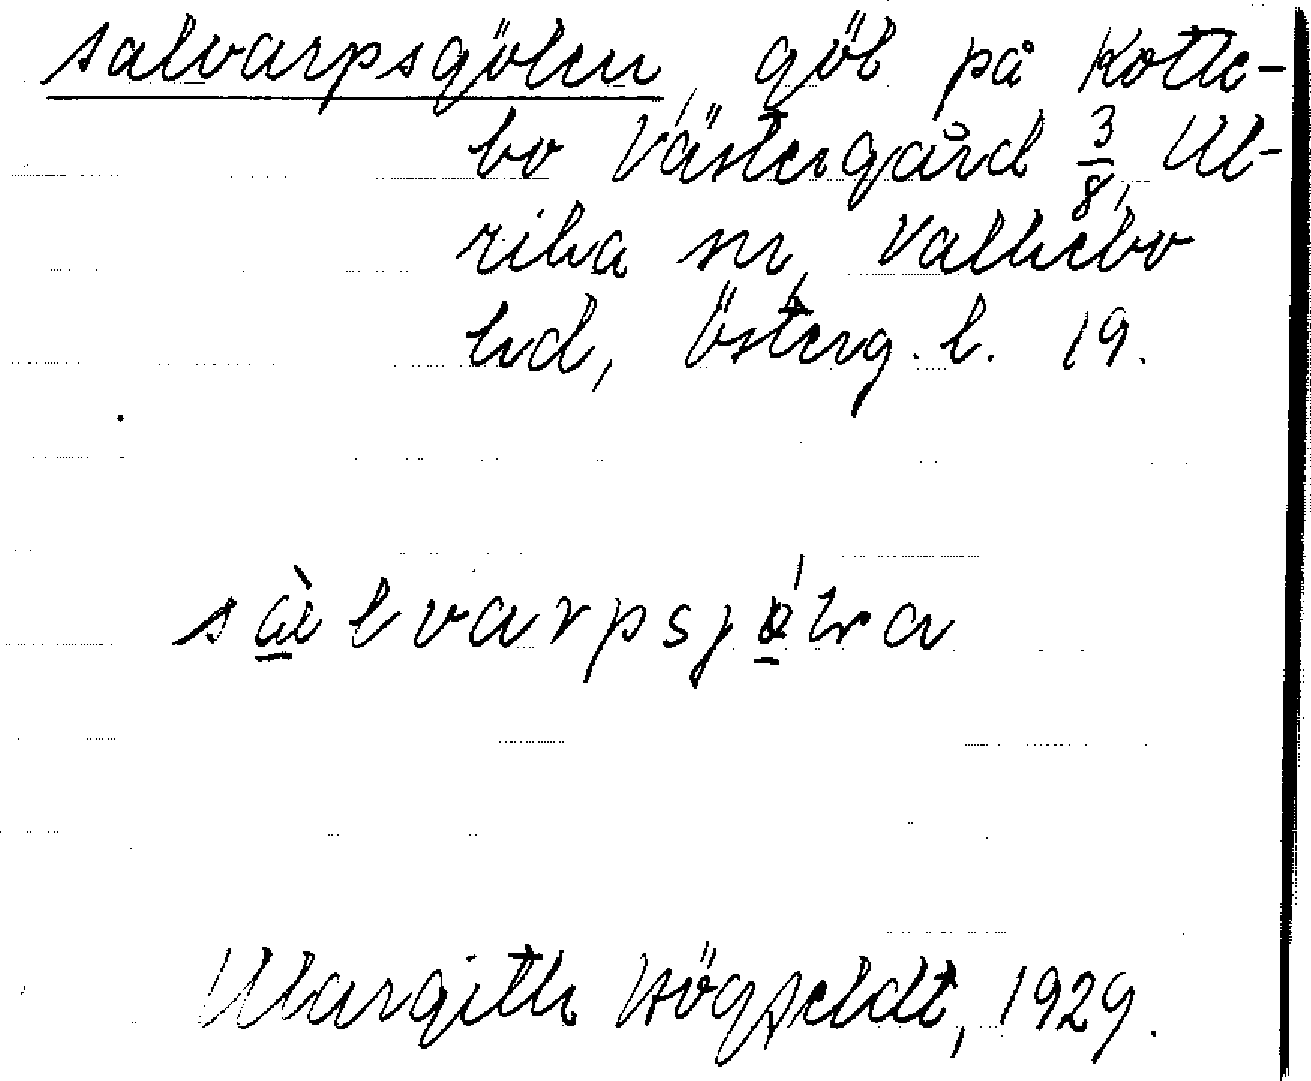 salvarpsgölen, göl på Kotte-
bo Västergård 3/8, Ul-
rika sn, Valkebo
hd, Österg. l. 19.
sàlvarpsjǿlna
Margith Högfeldt, 1929.